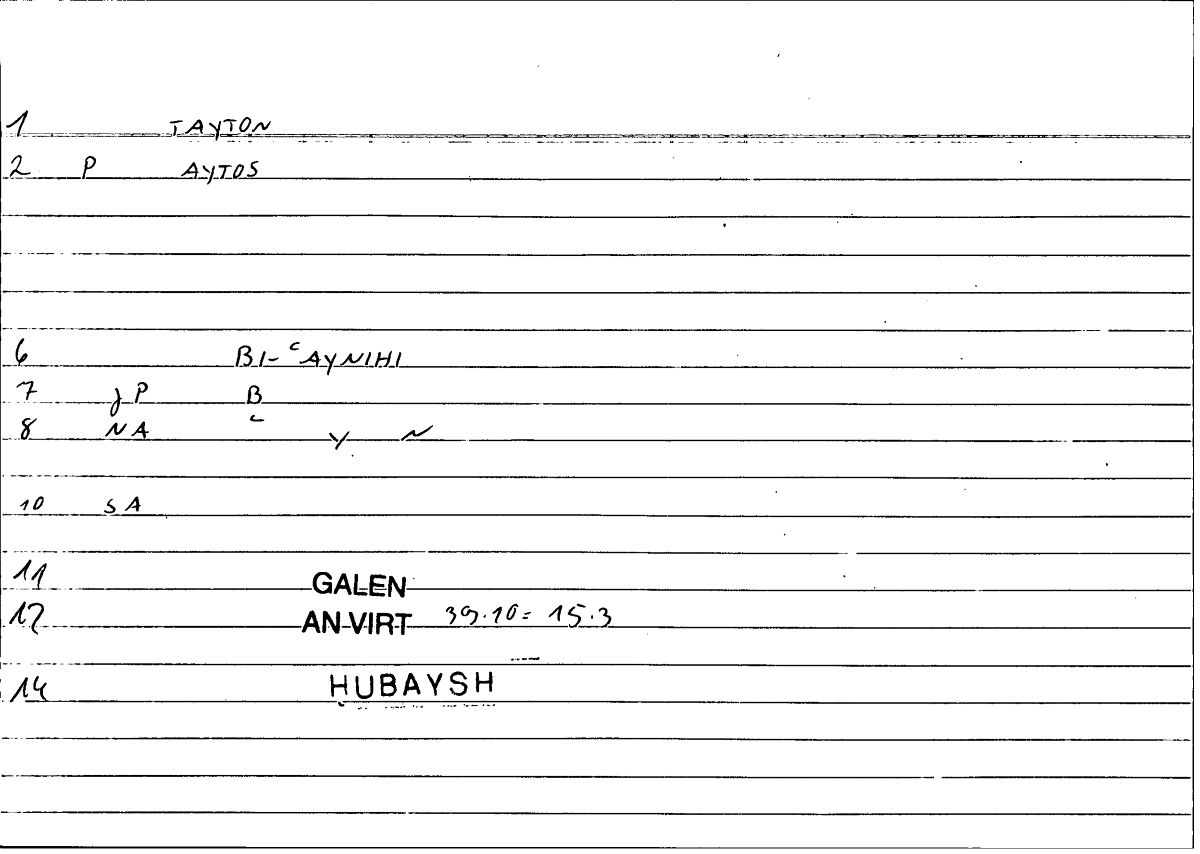 1 TAYTON
2 P AYTOS
6 BI-ᶜAYNIHI
7 J P B
8 NA ᶜ Y N
10 SA
11 GALEN
12 AN VIRT 39.10 = 15.3
14 HUBAYSH